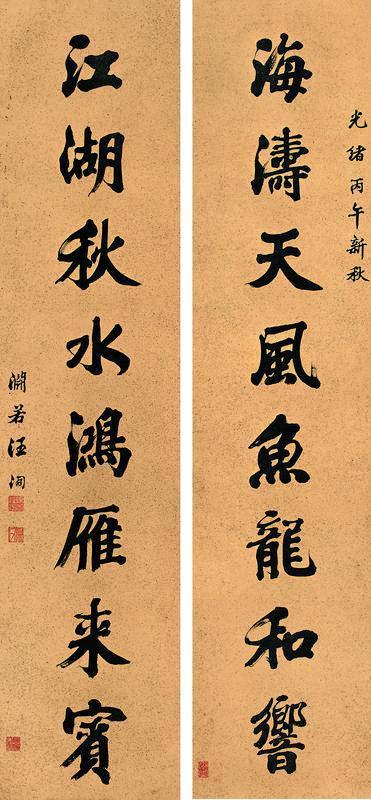 光緒丙午新秋
海濤天風魚龍和響
江湖秋水鴻雁来賓
淵若汪洵